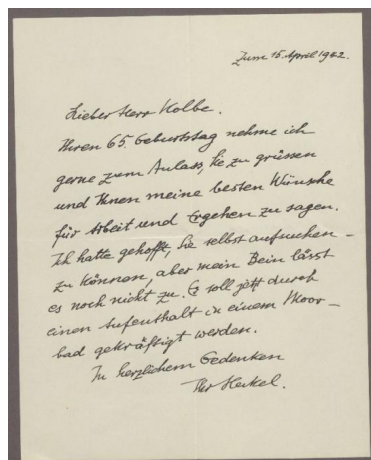 Zum 15. April 1942.
Lieber Herr Kolbe.
Ihren 65. Geburtstag nehme ich
gerne zum Anlass, Sie zu grüssen
und Ihnen meine besten Wünsche
für Arbeit und Ergehen zu sagen.
Ich hatte gehofft, Sie selbst aufsuchen –
zu können, aber mein Bein lässt
es noch nicht zu. Es soll jetzt durch
einen Aufenthalt in einem Moor –
bad gekräftigt werden.
In herzlichem Gedenken
Ihr Heckel.